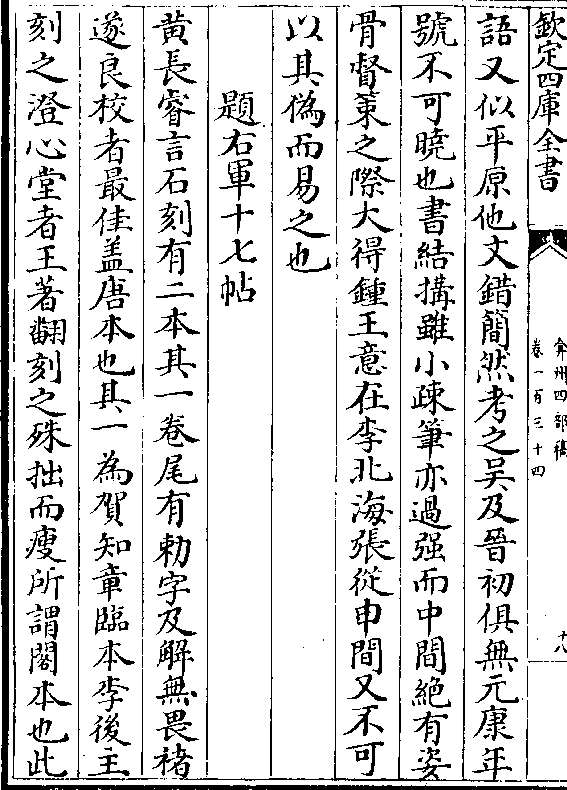 欽定四庫全書
弇州四部稿
卷一百三十四
十八
語又似平原他文錯簡然考之吳及晉初俱無元康年
號不可曉也書結搆雖小疎筆亦過强而中間絶有姿
骨督䇿之際大得鍾王意在李北海張從申間又不可
以其偽而易之也
題右軍十七帖
黄長睿言石刻有二本其一卷尾有勅字及解無畏禇
遂良校者最佳盖唐本也其一為賀知章臨本李後主
刻之澄心堂者王著翻刻之殊拙而瘦所謂閣本也此